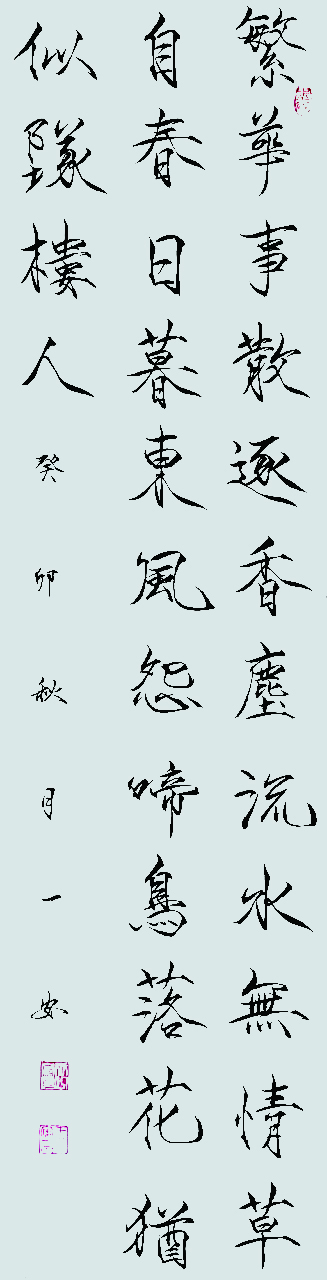 繁華事散逐香塵流水無情草
自春日暮東風怨啼鳥落花猶
似墜樓人癸卯秋月一安